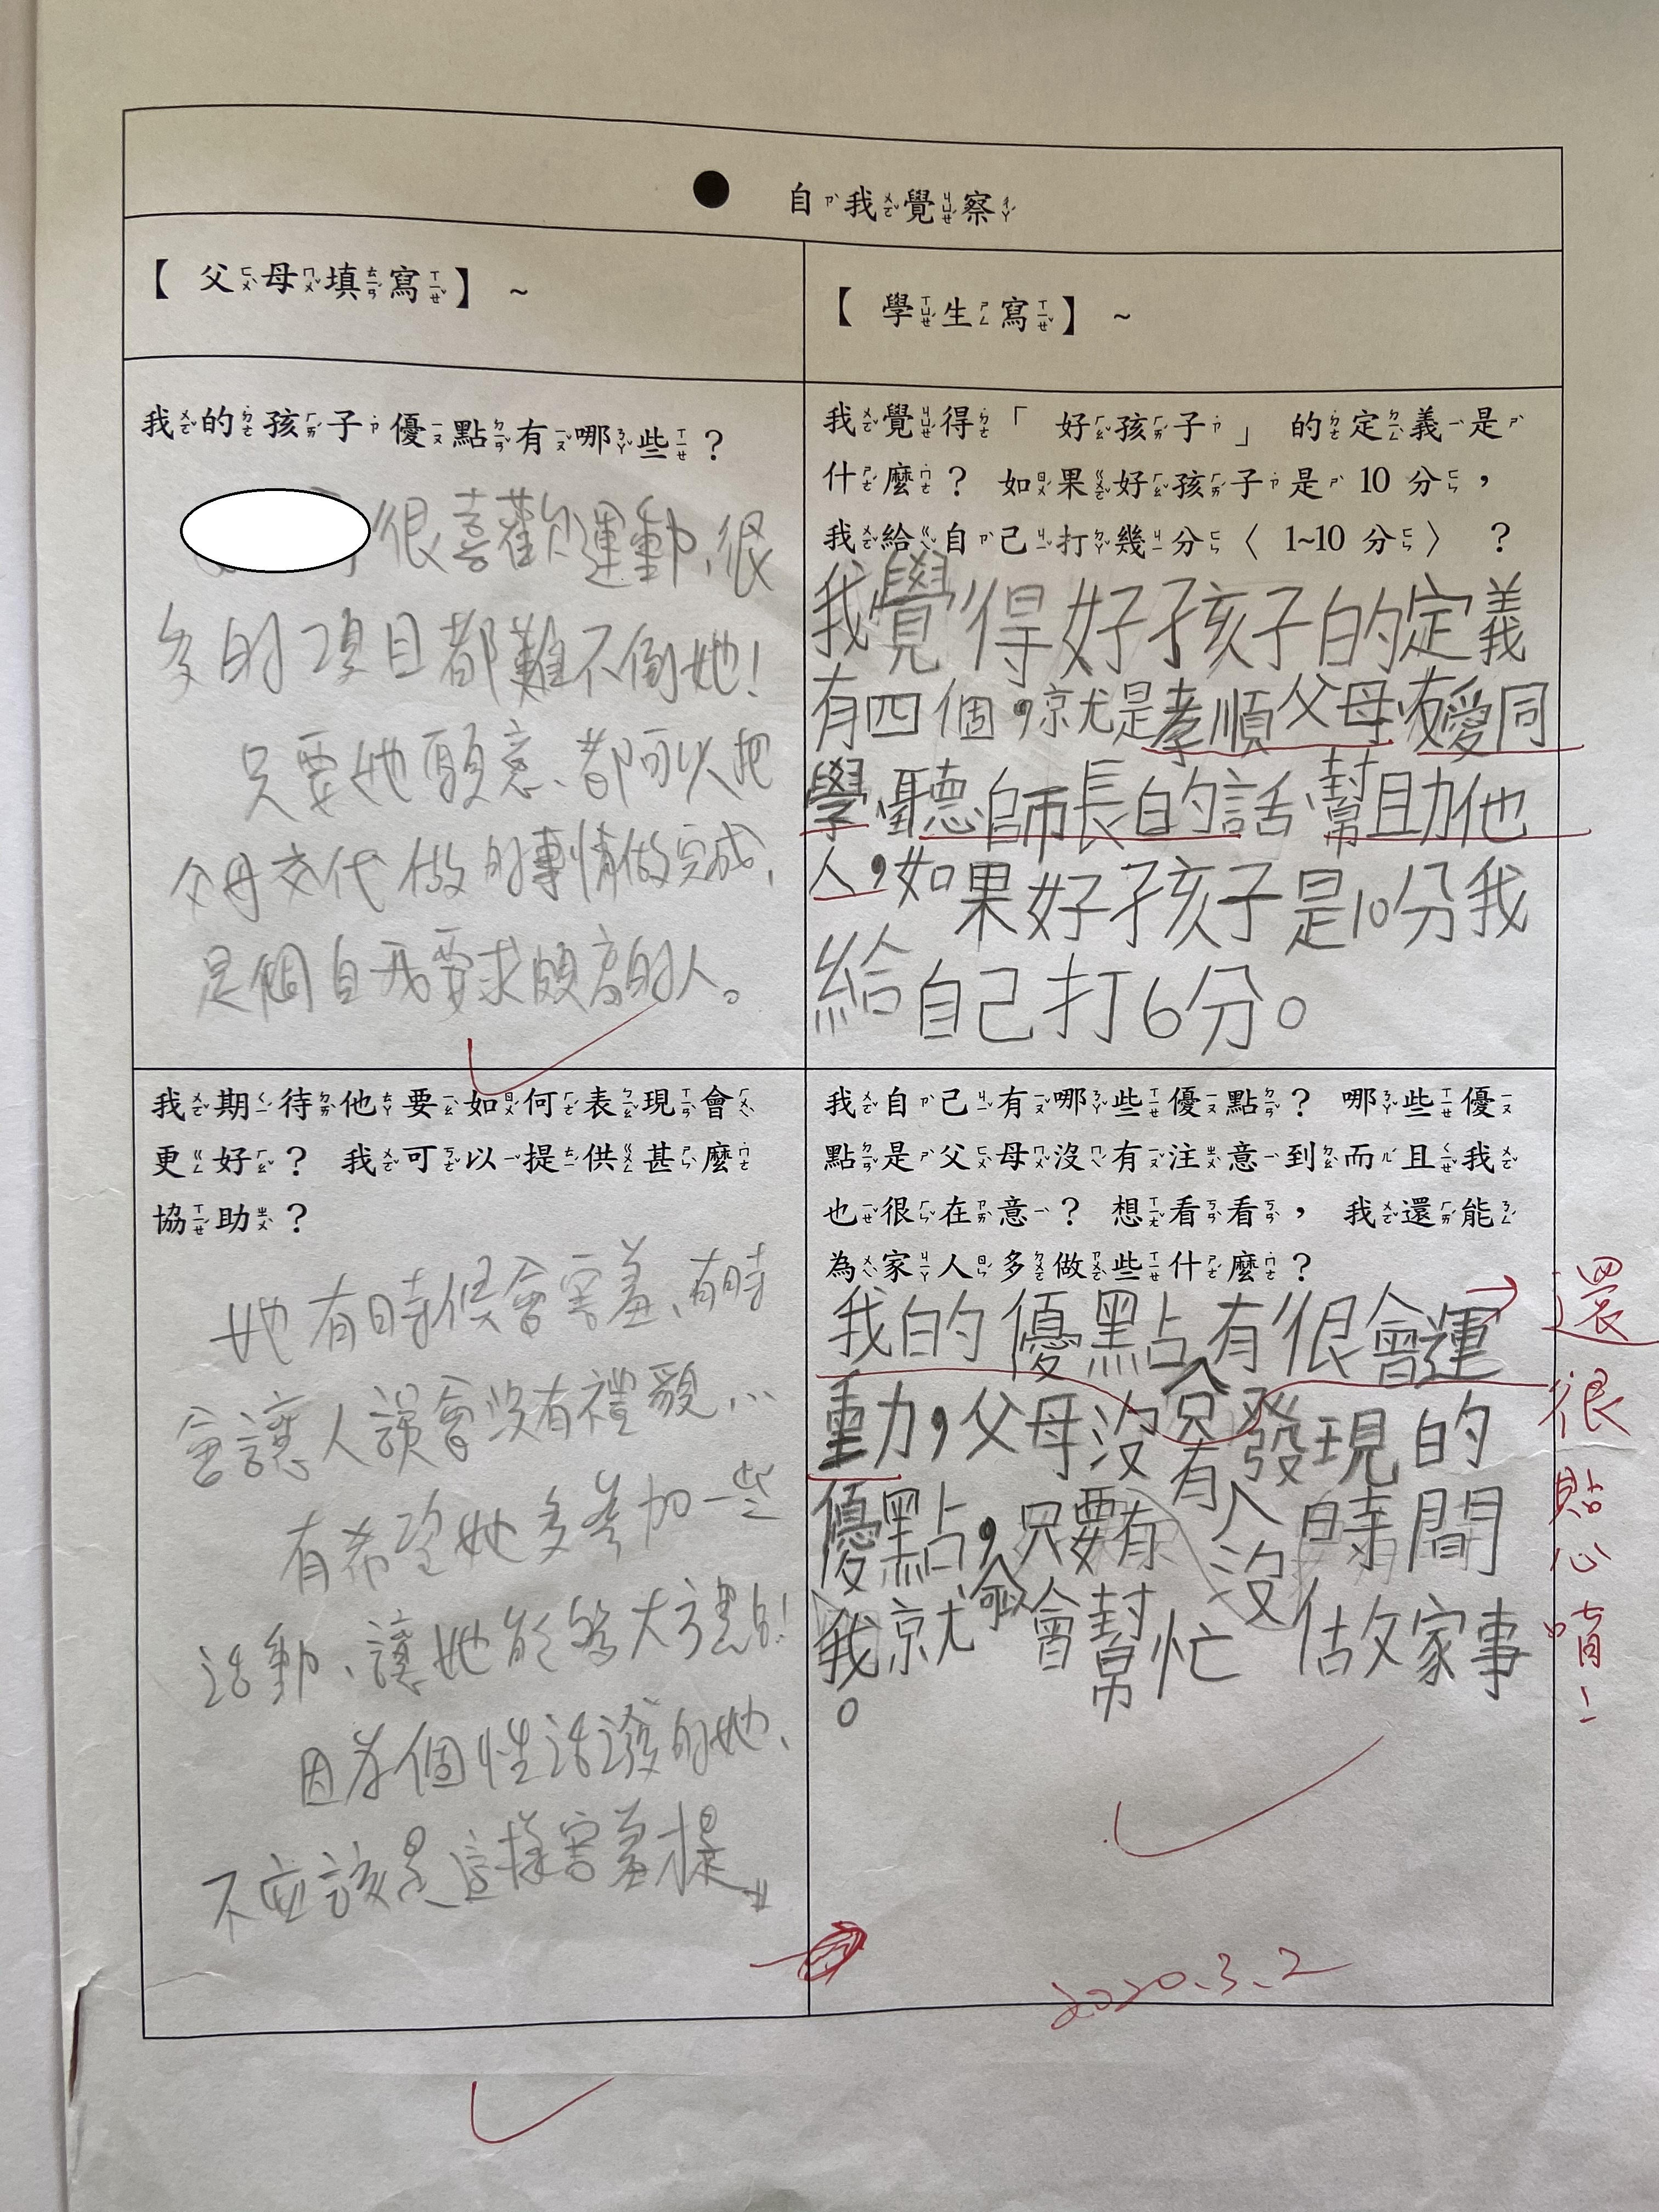 ● 自我覺察
【 父母填寫 】 ~
我的孩子優點有哪些？
很喜歡運動、很
多的項目都難不倒她！
只要她願意、都可以把
父母交代做的事情做完成、
是個自我要求頗高的人。
我期待他要如何表現會
更好？ 我可以提供甚麼
協助？
她有時候會害羞、有時
會讓人誤會沒有禮貌…
有希望她多參加一些
活動、讓她能夠大方點！
因為個性活潑的她、
不應該是這樣害羞才是
【 學生寫 】 ~
我覺得「 好孩子 」 的定義是
什麼？ 如果好孩子是 10 分，
我給自己打幾分〈 1~10 分〉 ？
我覺得好孩子的定義
有四個，就是孝順父母、友愛同
學、聽師長的話、幫助他
人，如果好孩子是10分我
給自己打6分。
我自己有哪些優點？ 哪些優
點是父母沒有注意到而且我
也很在意？ 想看看， 我還能
為家人多做些什麼？
我的優點有很會運
動，父母沒有發現的
優點，只要有人沒時間
我就會幫忙做家事
。
還很貼心唷！
2020.3.2